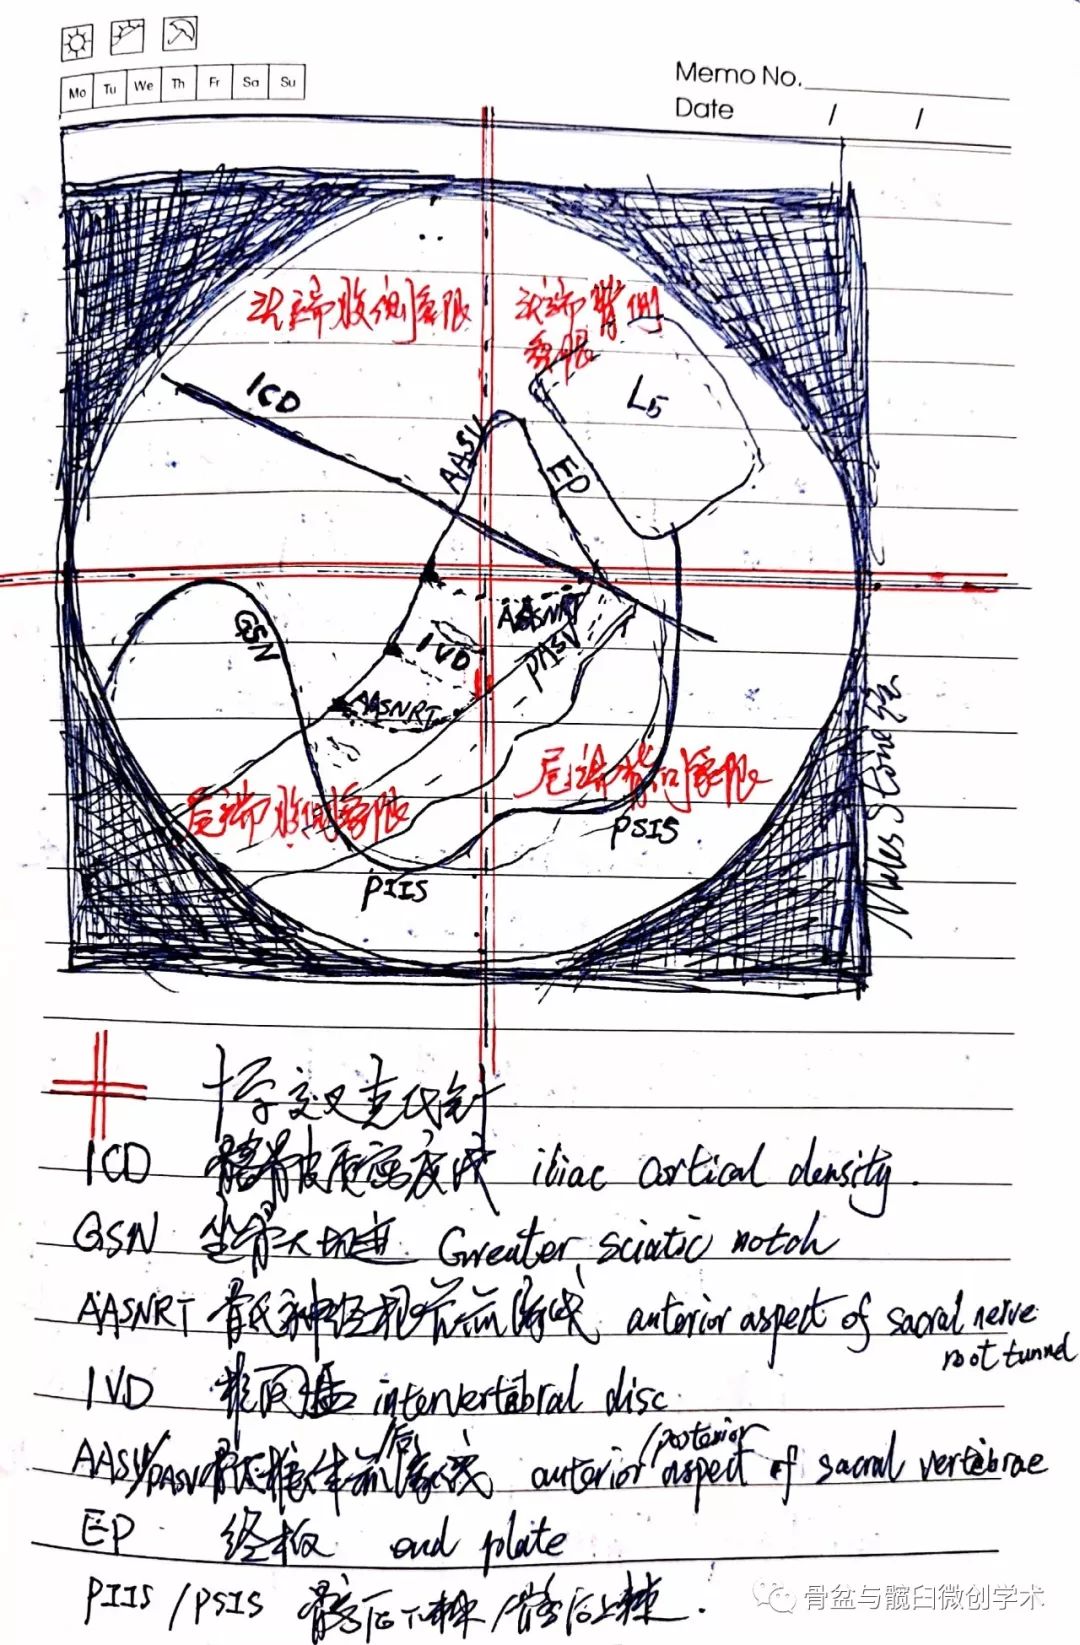 Mo Tu We Th Fr Sa Su
Memo No.
Date / /
头端腹侧象限
头端背侧
象限
L5
ICD
AASV
EP
GSN
AASNRT
IVD
PASV
AASNRT
尾端背侧象限
尾端腹侧象限
PSIS
PIIS
Stone
十字交叉克氏针
ICD 髂骨皮质密度线 iliac cortical density.
GSN 坐骨大切迹 Greater sciatic notch
AASNRT 骶神经根 anterior aspect of sacral nerve
root tunnel
IVD 椎间盘 intervertebral disc
/后 /posterior
AASV/PASV 骶椎体前缘线 anterior aspect of sacral vertebrae
EP 终板 end plate
PIIS /PSIS 髂后下棘/髂后上棘.
骨盆与髋臼微创学术